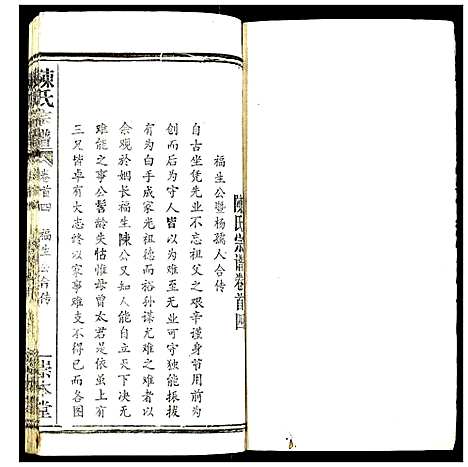 陳氏宗譜卷首四
福生公暨杨孺人合传
自古坐凭先业不忘祖父之艰辛谨身节用前为
创而后为守人皆以为难至无可守而独能振拔
有为白手成家光祖德而裕孙谋尤难之难者以
余观於姻长福生陳公又知人能自立天下决无
难能之事公髫龄失怙惟母曾太君是依虽上有
三兄皆卓有大志终以家事难支不得已而各图
陳氏宗譜
卷首四
福生公合传
崇本堂